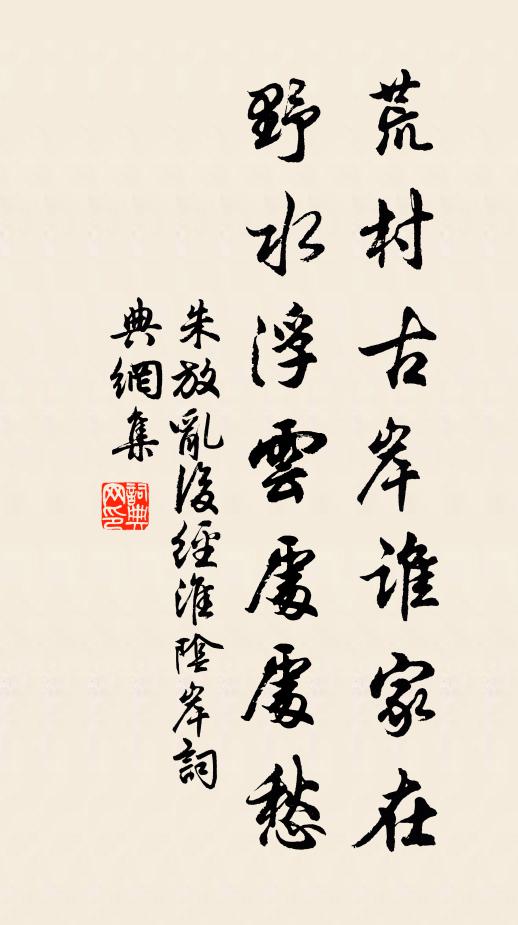 荒村古岸誰家在
野水浮雲處處愁
朱放亂後經淮陰岸詞
典網集
詞典
网印